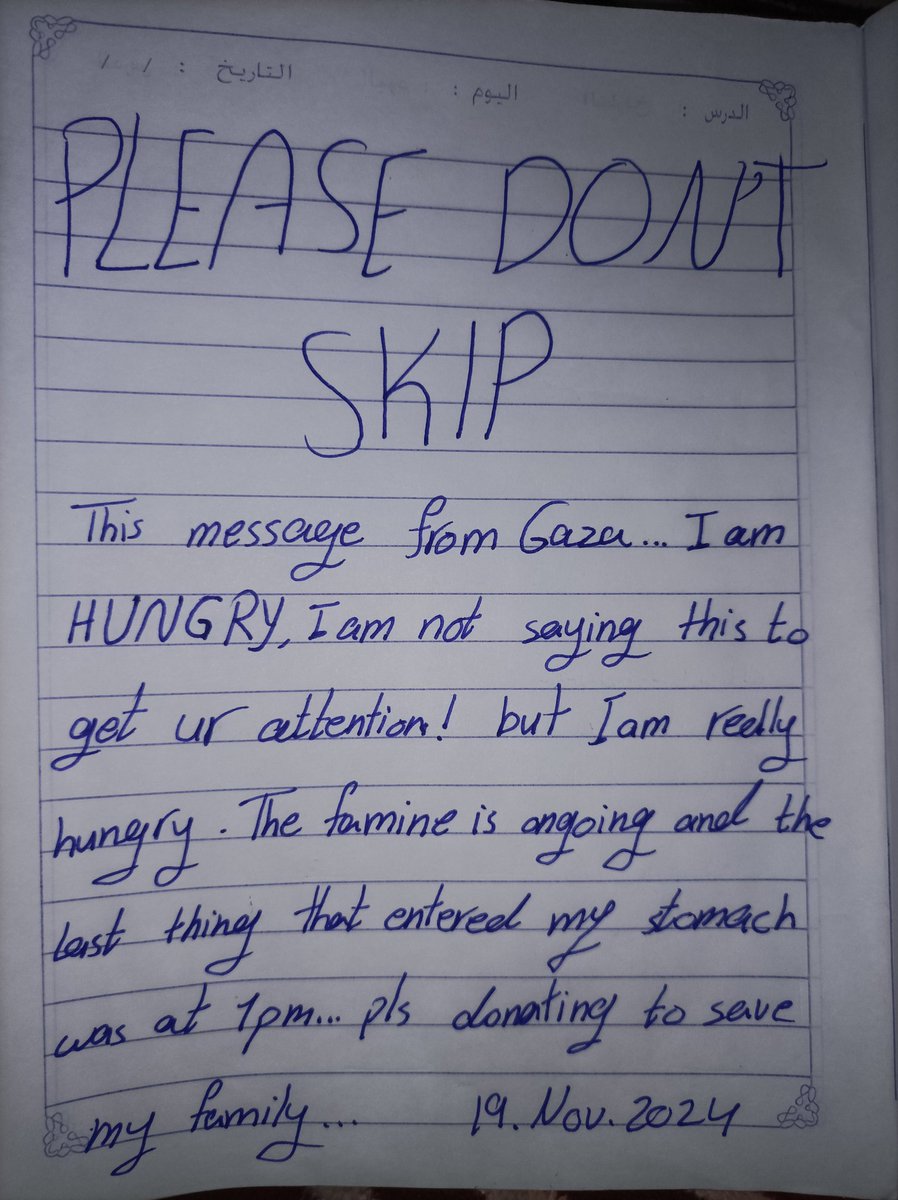 التاريخ : / /
اليوم :
الدرس :
PLEASE DON'T
SKIP
This message from Gaza... I am
HUNGRY, I am not saying this to
get ur attention! but I am really
hungry. The famine is ongoing and the
last thing that entered my stomach
was at 1pm... pls donating to save
my family... 19. Nov. 2024